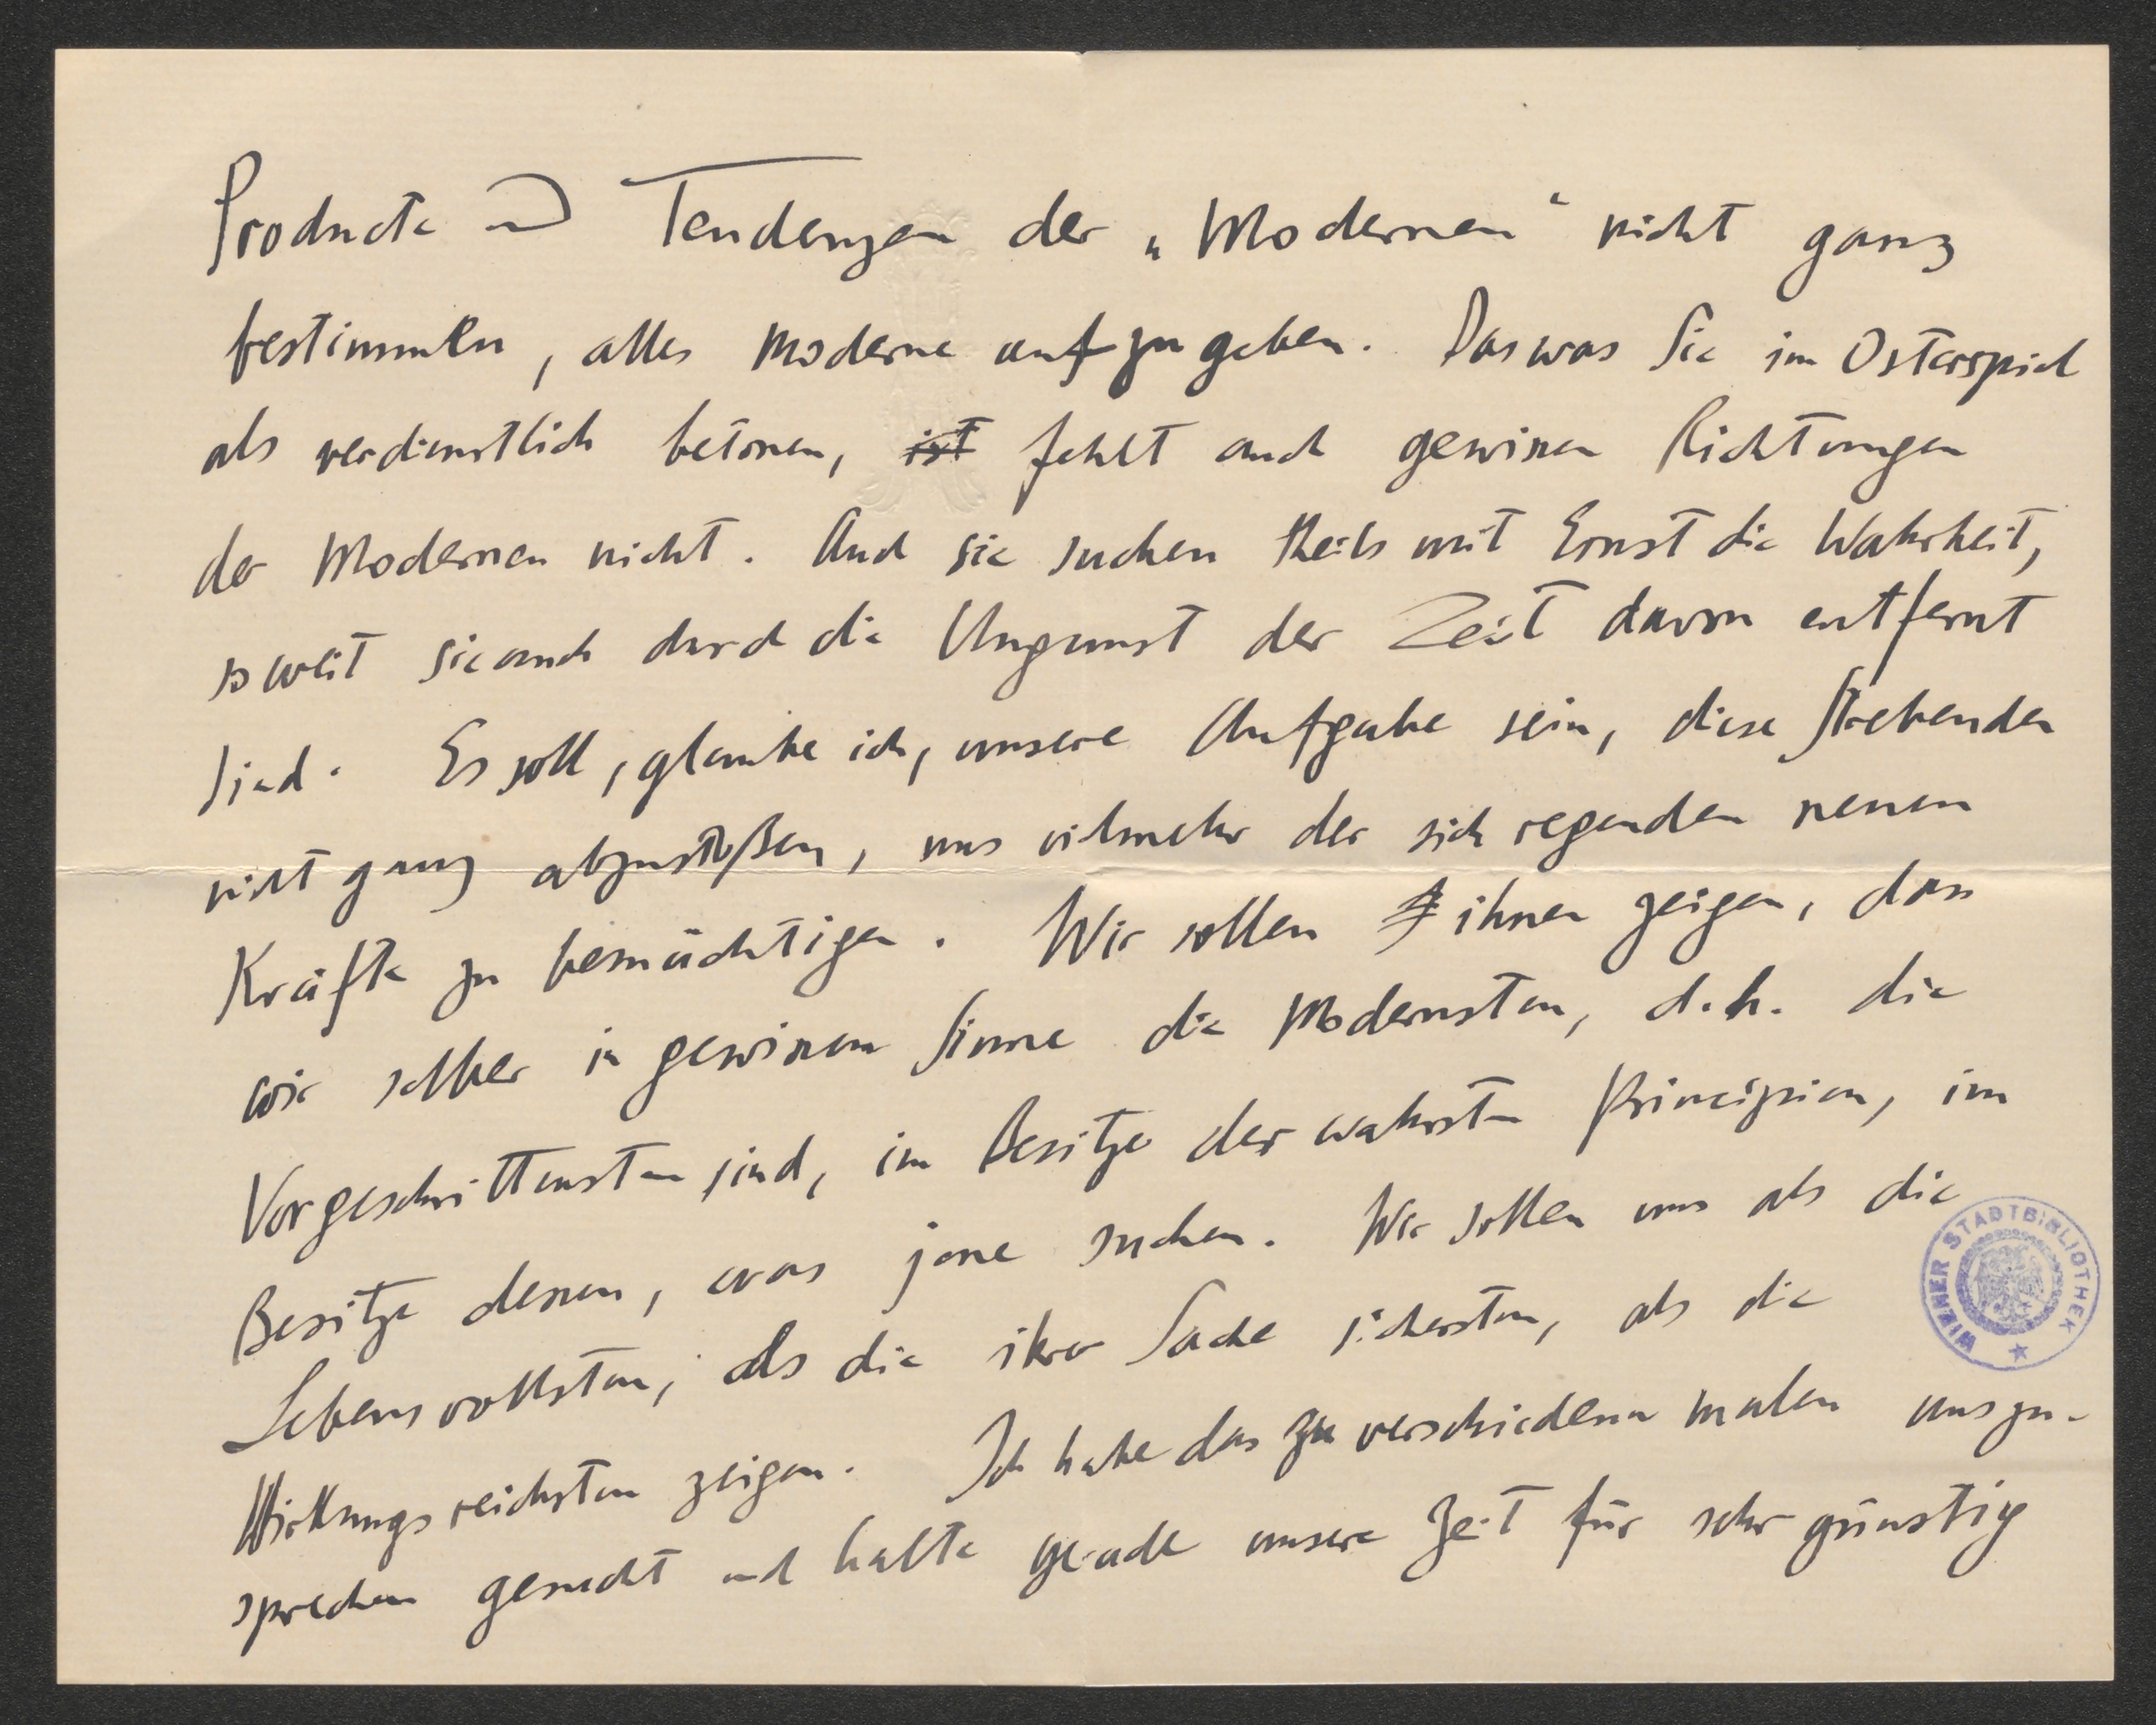 Producte und Tendenzen der „Modernen“ nicht ganz
bestimmen, alles Moderne aufzugeben. Das was Sie im Osterspiel
als verdienstlich betonen, ist fehlt auch gewissen Richtungen
der Modernen nicht. Auch sie suchen theils mit Ernst die Wahrheit,
so weit sie auch durch die Ungunst der Zeit davon entfernt
sind. Es soll, glaube ich, unsere Aufgabe sein, diese Strebenden
nicht ganz abzustoßen, uns vielmehr der sich regenden neuen
Kräfte zu bemächtigen. Wir sollen ihnen zeigen, dass
wir selber in gewissem Sinne die Modernsten, d.h. die
Vorgeschrittensten sind, im Besitze der wahrsten Principien, im
Besitze dessen, was jene suchen. Wir sollen uns als die
Lebensvollsten, als die ihrer Sache sichersten, als die
Wirkungsreichsten zeigen. Ich habe das zu verschiedenen malen auszu-
sprechen gesucht und halte gerade unsere Zeit für sehr günstig
WIENER STADTBIBLIOTHEK